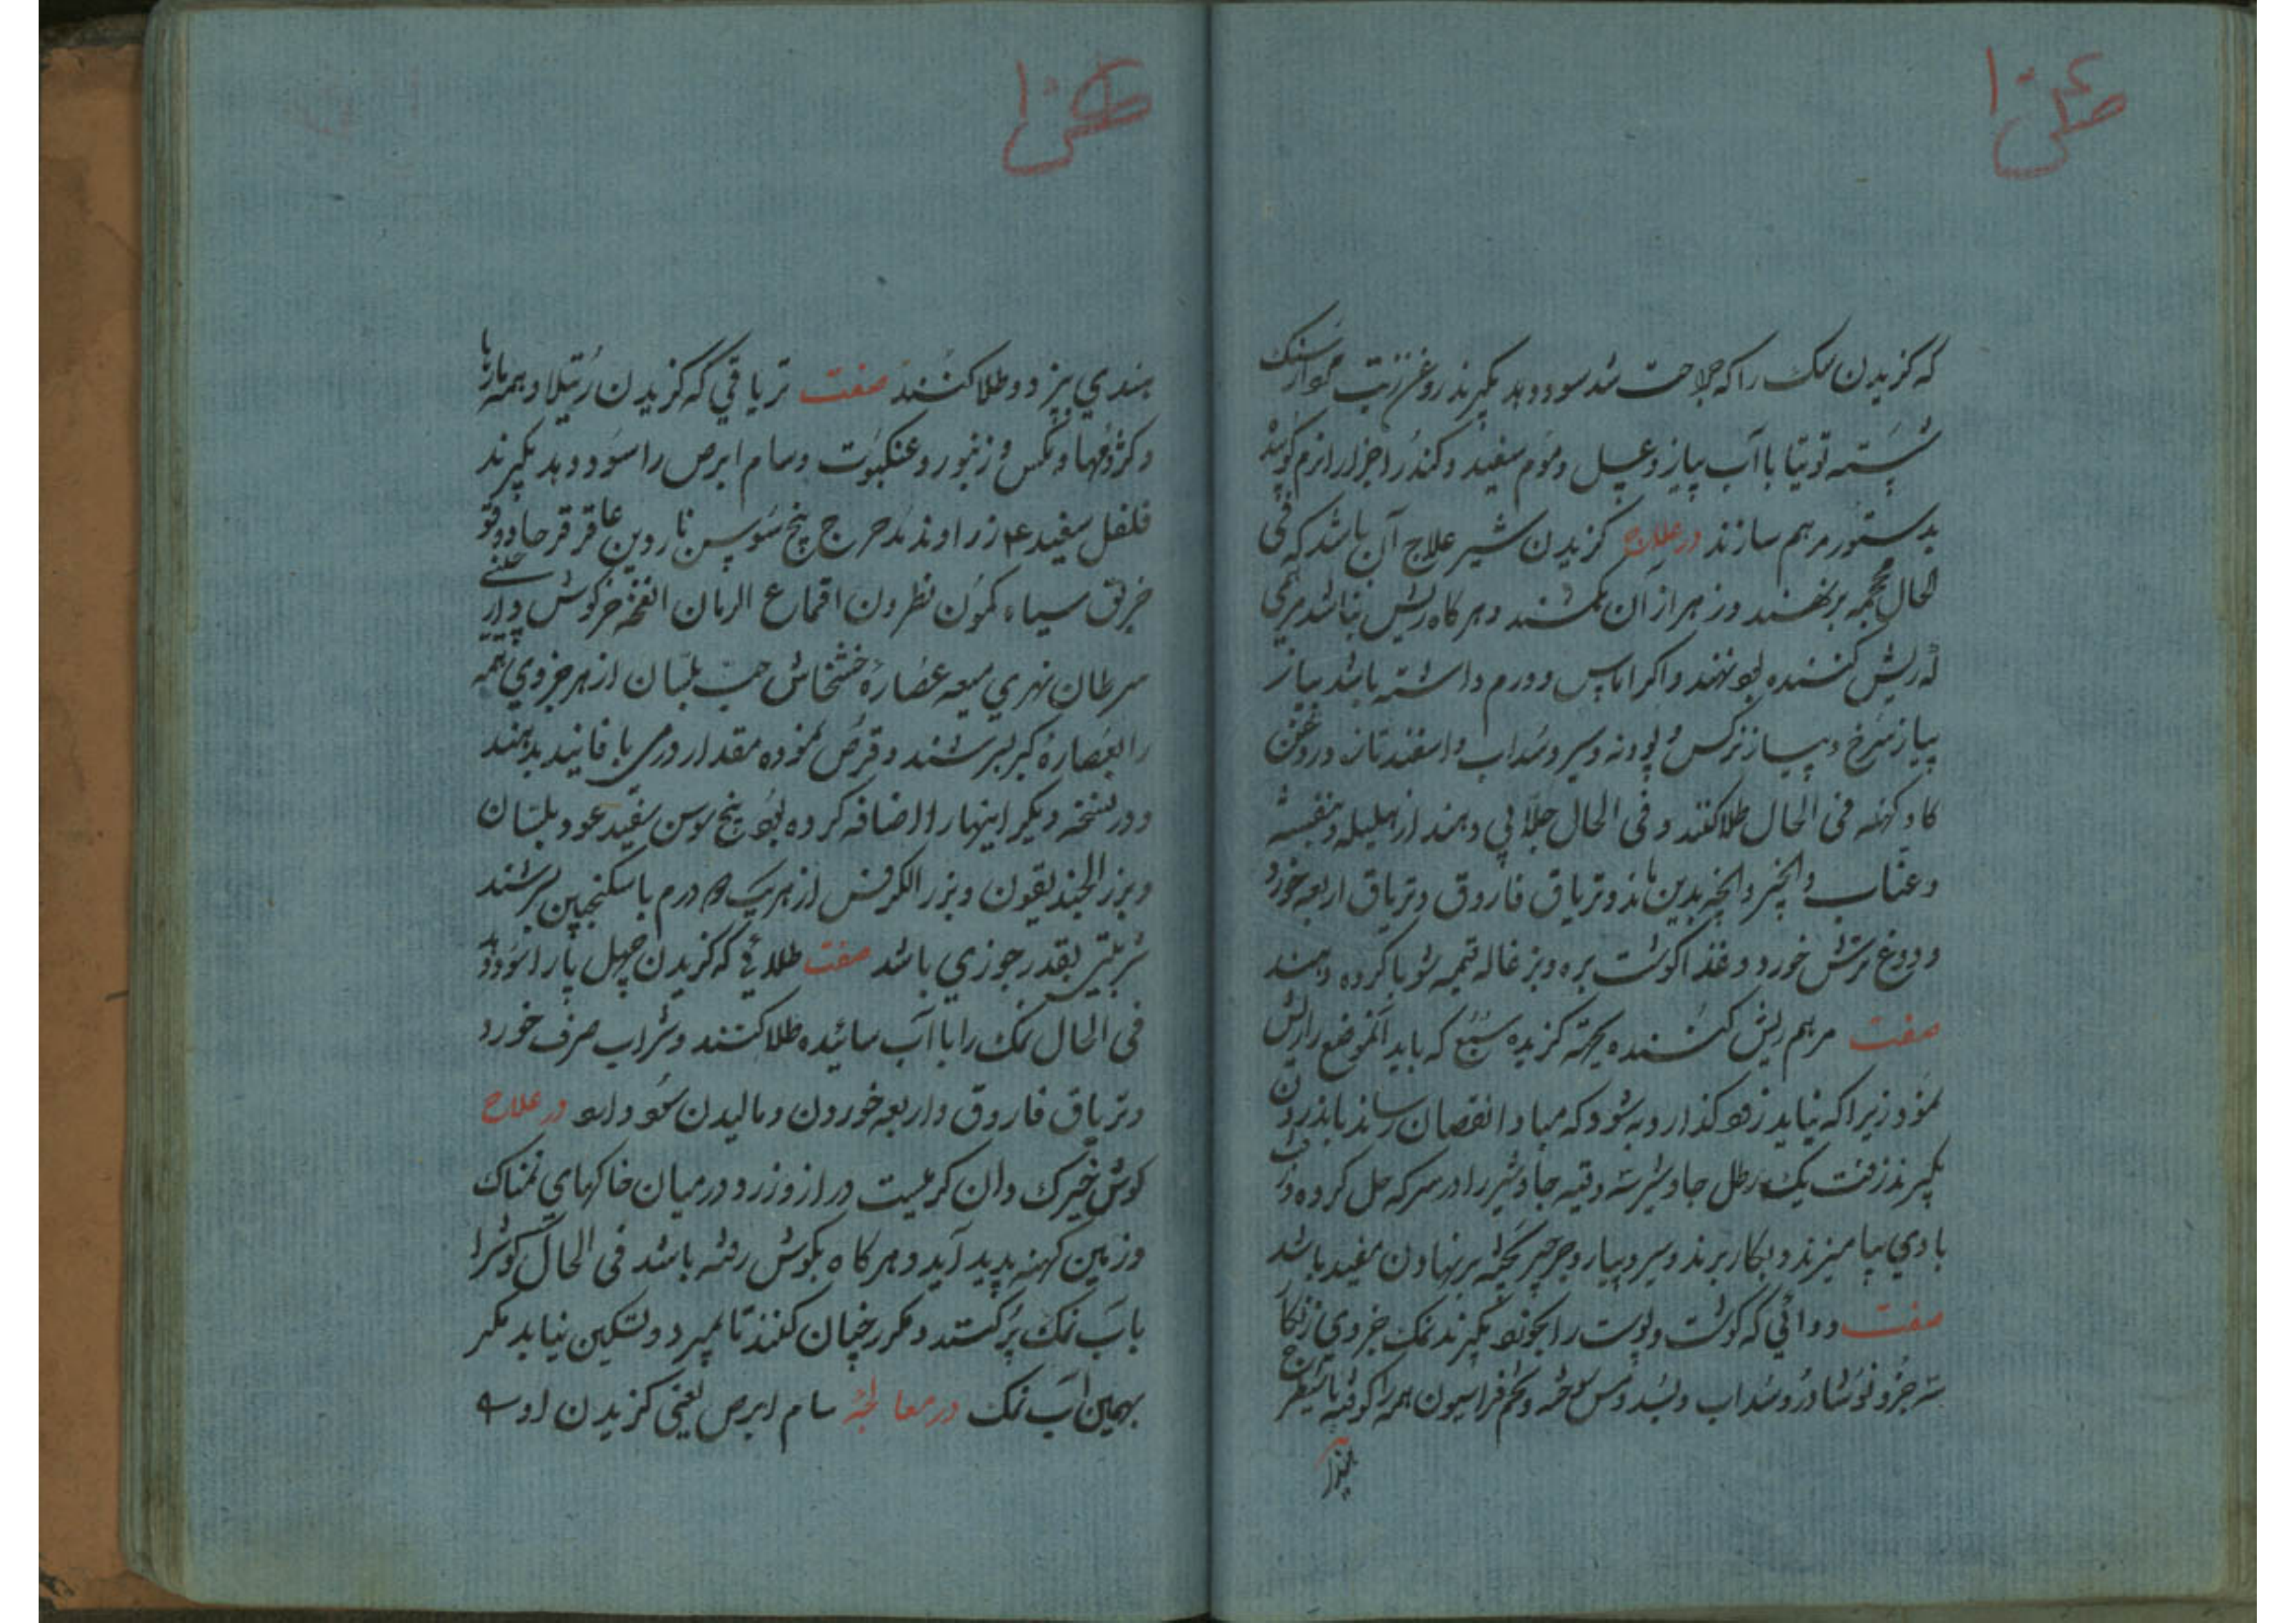 که کزیدن سک را که جراحت شد سود دهد بکیرند روغن زیت مردارسنک
شسته توتیا با آب پیاز و عسل و موم سفید و کندر اجزا را نرم کوبند
بدستور مرهم سازند در علاج کزیدن شیر علاج آن باشد که فی
الحال محجمه برنهند و زهر از آن بکشند و هرکاه ریش نباشد مرهمی
که ریش کننده بود نهند و اکر آماس و ورم داشته باشد پیاز
پیاز سرخ و پیاز نرکس و پودنه و سیر و سداب و اسفند تازه در روغن
کاو کهنه فی الحال طلا کنند و فی الحال جلابی دهند از هلیله و بنفشه
و عناب و انجیر و انچه بدین ماند و تریاق فاروق و تریاق اربعه خورد
و دوغ ترش خورد و غذا کوشت بره و بزغاله قیمه شوربا کرده دهند
صفت مرهم ریش کننده بجهته کزیده سبع که باید آنموضع را ریش
نمود زیرا که نباید زود کذارد به شود که مبادا نقصان رساند باندرون
بکیرند زفت یک رطل جاوشیر سه وقیه جاوشیر را در سرکه حل کرده زفت
با وی بیامیزند و بکار برند و سیر و پیاز و جرجیر پخته برنهادن مفید باشد
صفت دوائی که کوشت و پوست را بخورد بکیرند نمک جزوی زنکار
سه جزو نوشادر و سداب و بسد و مس سوخته و تخم فراسیون همه را کوفته با شیطرج
هندی
هندی پزد و طلا کنند صفت تریاقی که کزیدن رتیلا و همه مارها
و کژدمها و مکس و زنبور و عنکبوت و سام ابرص را سود دهد بکیرند
فلفل سفید ۴ زراوند مدحرج بیخ سوسن ناردین عاقرقرحا دوقو
خربق سیاه کمون نطرون اقماع الرمان انفخه خرکوش دارچینی
سرطان نهری میعه عصاره خشخاش حب بلسان از هر جزوی همه
را بعصاره کبر بسرشند و قرص نموده مقدار درمی با فانید بدهند
و در نسخه دیکر اینها را اضافه کرده بود بیخ سوسن سفید عود بلسان
و بزر الحندیقون و بزر الکرفس از هریک ۵ درم با سکنجبین بسرشند
شربتی بقدر جوزی باشد صفت طلائی که کزیدن چهل پا را سود دهد
فی الحال نمک را با آب سائیده طلا کنند و شراب صرف خورد
و تریاق فاروق و اربعه خوردن و مالیدن سود دارد در علاج
کوش خیزک و ان کرمیست دراز و زرد در میان خاکهای نمناک
و زمین کهنه پدید آید و هرکاه بکوش رفته باشد فی الحال کوشرا
باب نمک پر کنند و مکرر چنان کنند تا بمیرد و تسکین نیابد مکر
بهمین آب نمک در معالجه سام ابرص یعنی کزیدن او سه